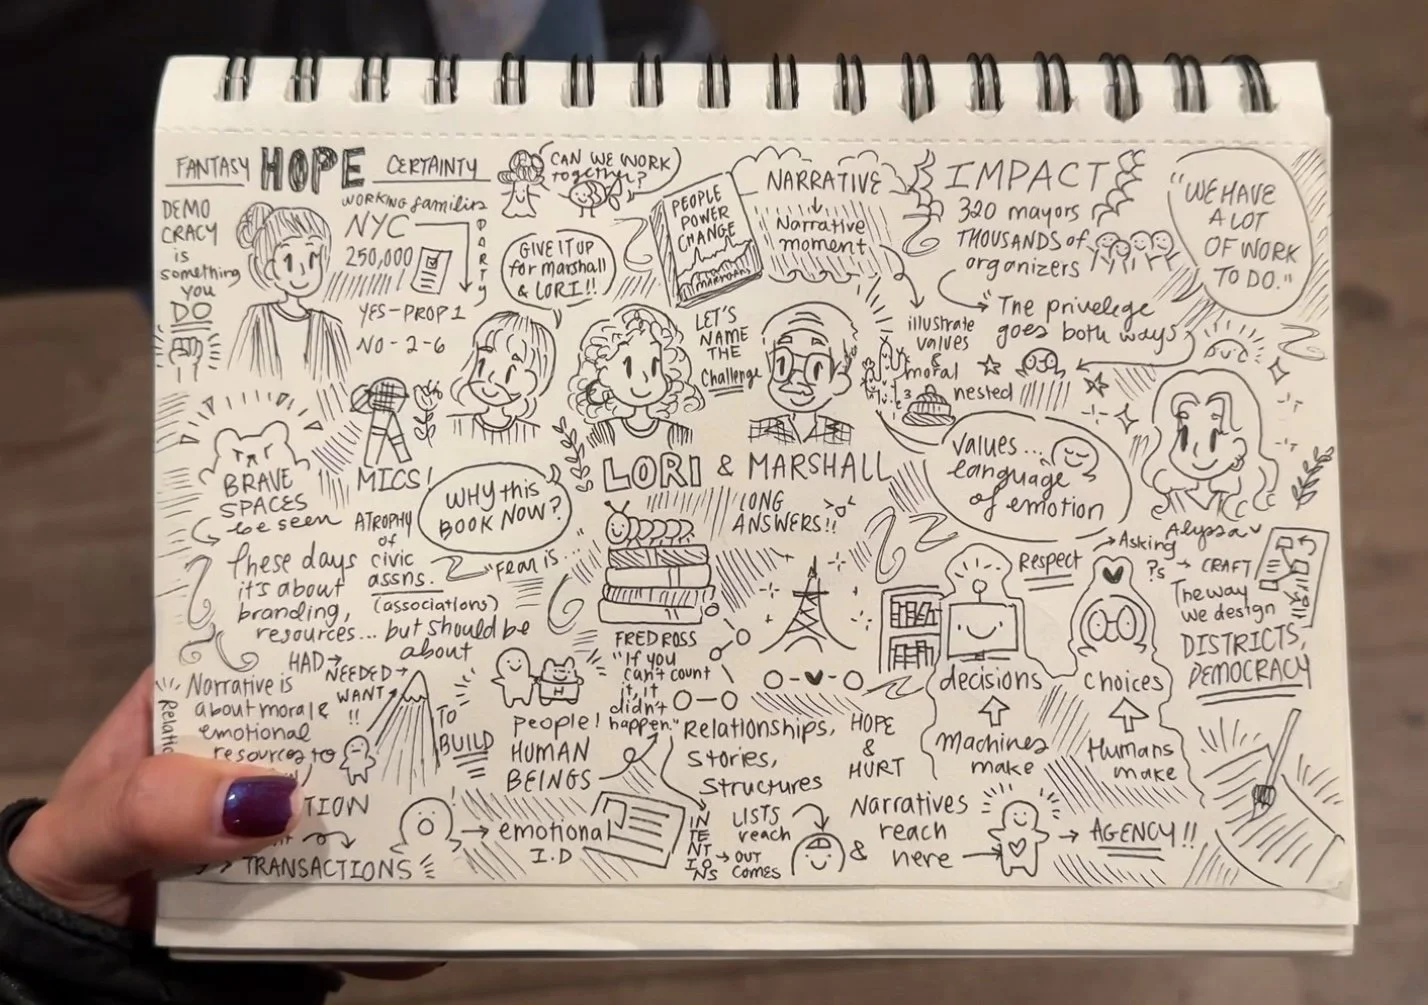 FANTASY HOPE CERTAINTY
DEMO
CRACY
is
something
you
DO
WORKING families
PARTY
NYC
250,000
YES-PROP 1
NO-2-6
CAN WE WORK
together?
GIVE IT UP
for Marshall
& LORI!!
PEOPLE
POWER
CHANGE
NARRATIVE
Narrative
moment
IMPACT
320 mayors
THOUSANDS of
organizers
"The privelege
goes both ways
"WE HAVE
A LOT
OF WORK
TO DO."
LET'S
NAME
THE
Challenge
illustrate
values
&
moral
nested
BRAVE
SPACES
be seen
MICS!
WHY this
BOOK NOW?
LORI & MARSHALL
LONG
ANSWERS!!
values...
language
of emotion
Alyssa
these days
it's about
branding,
resources...
ATROPHY
of
civic
assns.
(associations)
but should be
about
"Fear is...
FRED ROSS
"If you
can't count
it, it
didn't
happen."
Respect
Asking
?s
CRAFT
The way
we design
DISTRICTS,
DEMOCRACY
HAD
NEEDED
WANT
!!
Narrative is
about moral &
emotional
resources to
TION
TRANSACTIONS
TO
BUILD
people!
HUMAN
BEINGS
emotional
I.D
Relationships,
Stories,
Structures
HOPE
&
HURT
decisions
Machines
make
choices
Humans
make
INTENTIONS
LISTS
reach
OUT
COMES
&
Narratives
reach
here
AGENCY!!